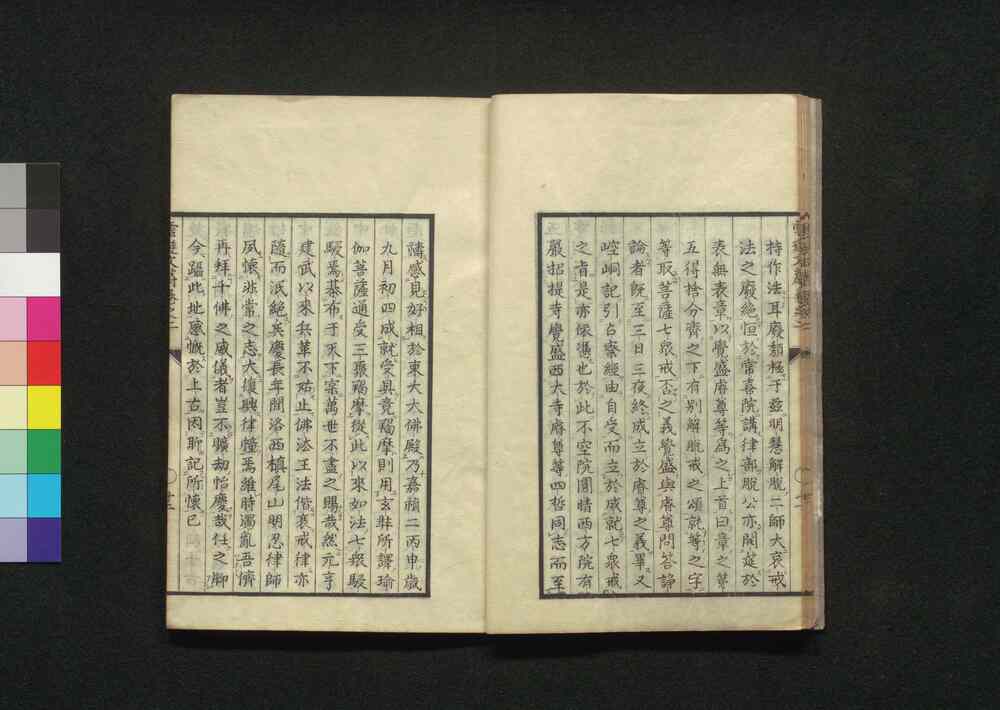 持作法耳廢頽極于茲明慧解脫二師大哀戒
法之廢絶恒於常喜院講律部脫公亦開莚於
表無表章以覺盛睿尊等爲之上首曰章之第
五得捨分齊之下有別解脫戒之頌就等之字
等取菩薩七衆戒否之義覺盛與睿尊問答諍
論者既至三日三夜終成立於睿尊之義畢又
崆峒記引占察經由自受而立於成就七衆戒
之肯是亦依憑也於此不空院圓晴西方院有
嚴招提寺覺盛西大寺睿尊等四哲同志而至
禱感見好相於東大大佛殿乃嘉禎二丙申歲
九月初四成就受具竟羯摩則用玄奘所譯瑜
伽菩薩通受三聚羯摩從此以來如法七衆駸
駸焉碁布于天下寔萬世不盡之賜哉然元亨
建武以來兵革不娯止佛法王法偕衰戒律亦
隨而泯絶矣慶長年間洛西槙尾山明忍律師
夙懷非常之志大復興律幢焉維時濁亂吾儕
再拜千佛之威儀者豈不曠劫怡慶哉任之卿
今躡此地感慨於上古因聊記所懷已